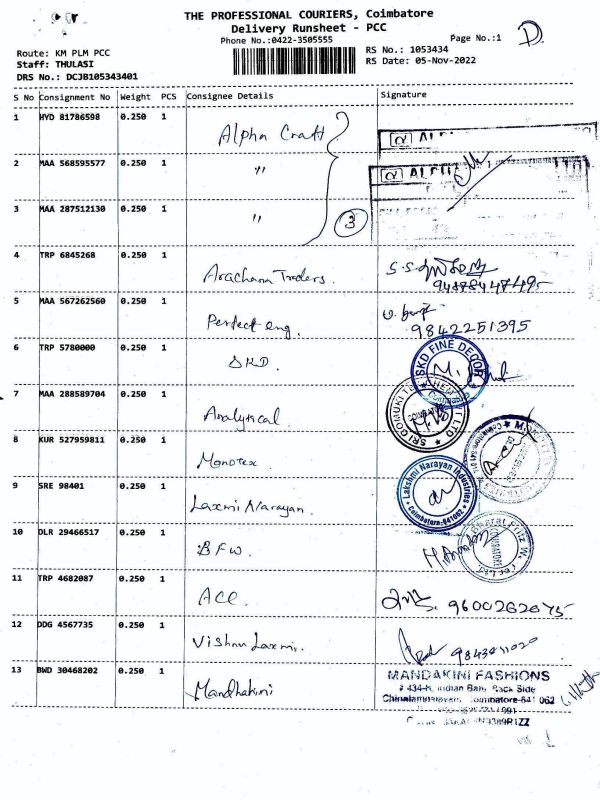 THE PROFESSIONAL COURIERS, Coimbatore
Delivery Runsheet - PCC
Phone No.:0422-3505555
Page No.:1
D
Route: KM PLM PCC
Staff: THULASI
DRS No.: DCJB105343401
RS No.: 1053434
RS Date: 05-Nov-2022
S No Consignment No Weight PCS Consignee Details Signature
1 HYD 81786598 0.250 1 Alpha Craft
2 MAA 568595577 0.250 1 "
3 MAA 287512130 0.250 1 " 3
4 TRP 6845268 0.250 1 Arachana Traders.
5 MAA 567262560 0.250 1 Perfect eng. 9842251395
6 TRP 5780000 0.250 1 SKD. SKD FINE DECOR
7 MAA 288589704 0.250 1 Analytical
8 KUR 527959811 0.250 1 Monotex.
9 SRE 98401 0.250 1 Laxmi Narayan. Lakshmi Narayan Industries Coimbatore-641062
10 DLR 29466517 0.250 1 BFW.
11 TRP 4682087 0.250 1 ACE. 9600262675
12 DDG 4567735 0.250 1 Vishnu Laxmi.
13 BWD 30468202 0.250 1 Mandhakini MANDAKINI FASHIONS
Indian Bank Back Side
Coimbatore-641 062